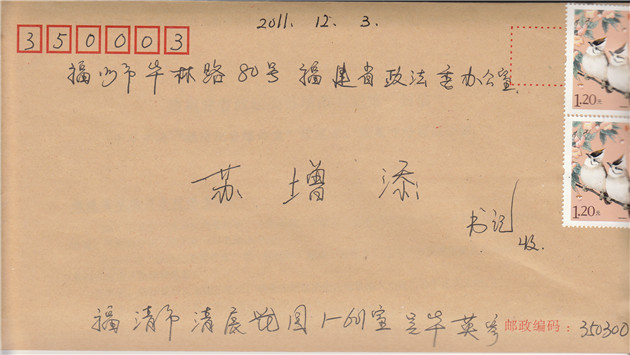 2011. 12. 3.
350003
福州市华林路80号 福建省政法委办公室
1.20元
苏增添
书记
收
1.20元
福清市清展花园1-601室 吴华英寄
邮政编码:350300